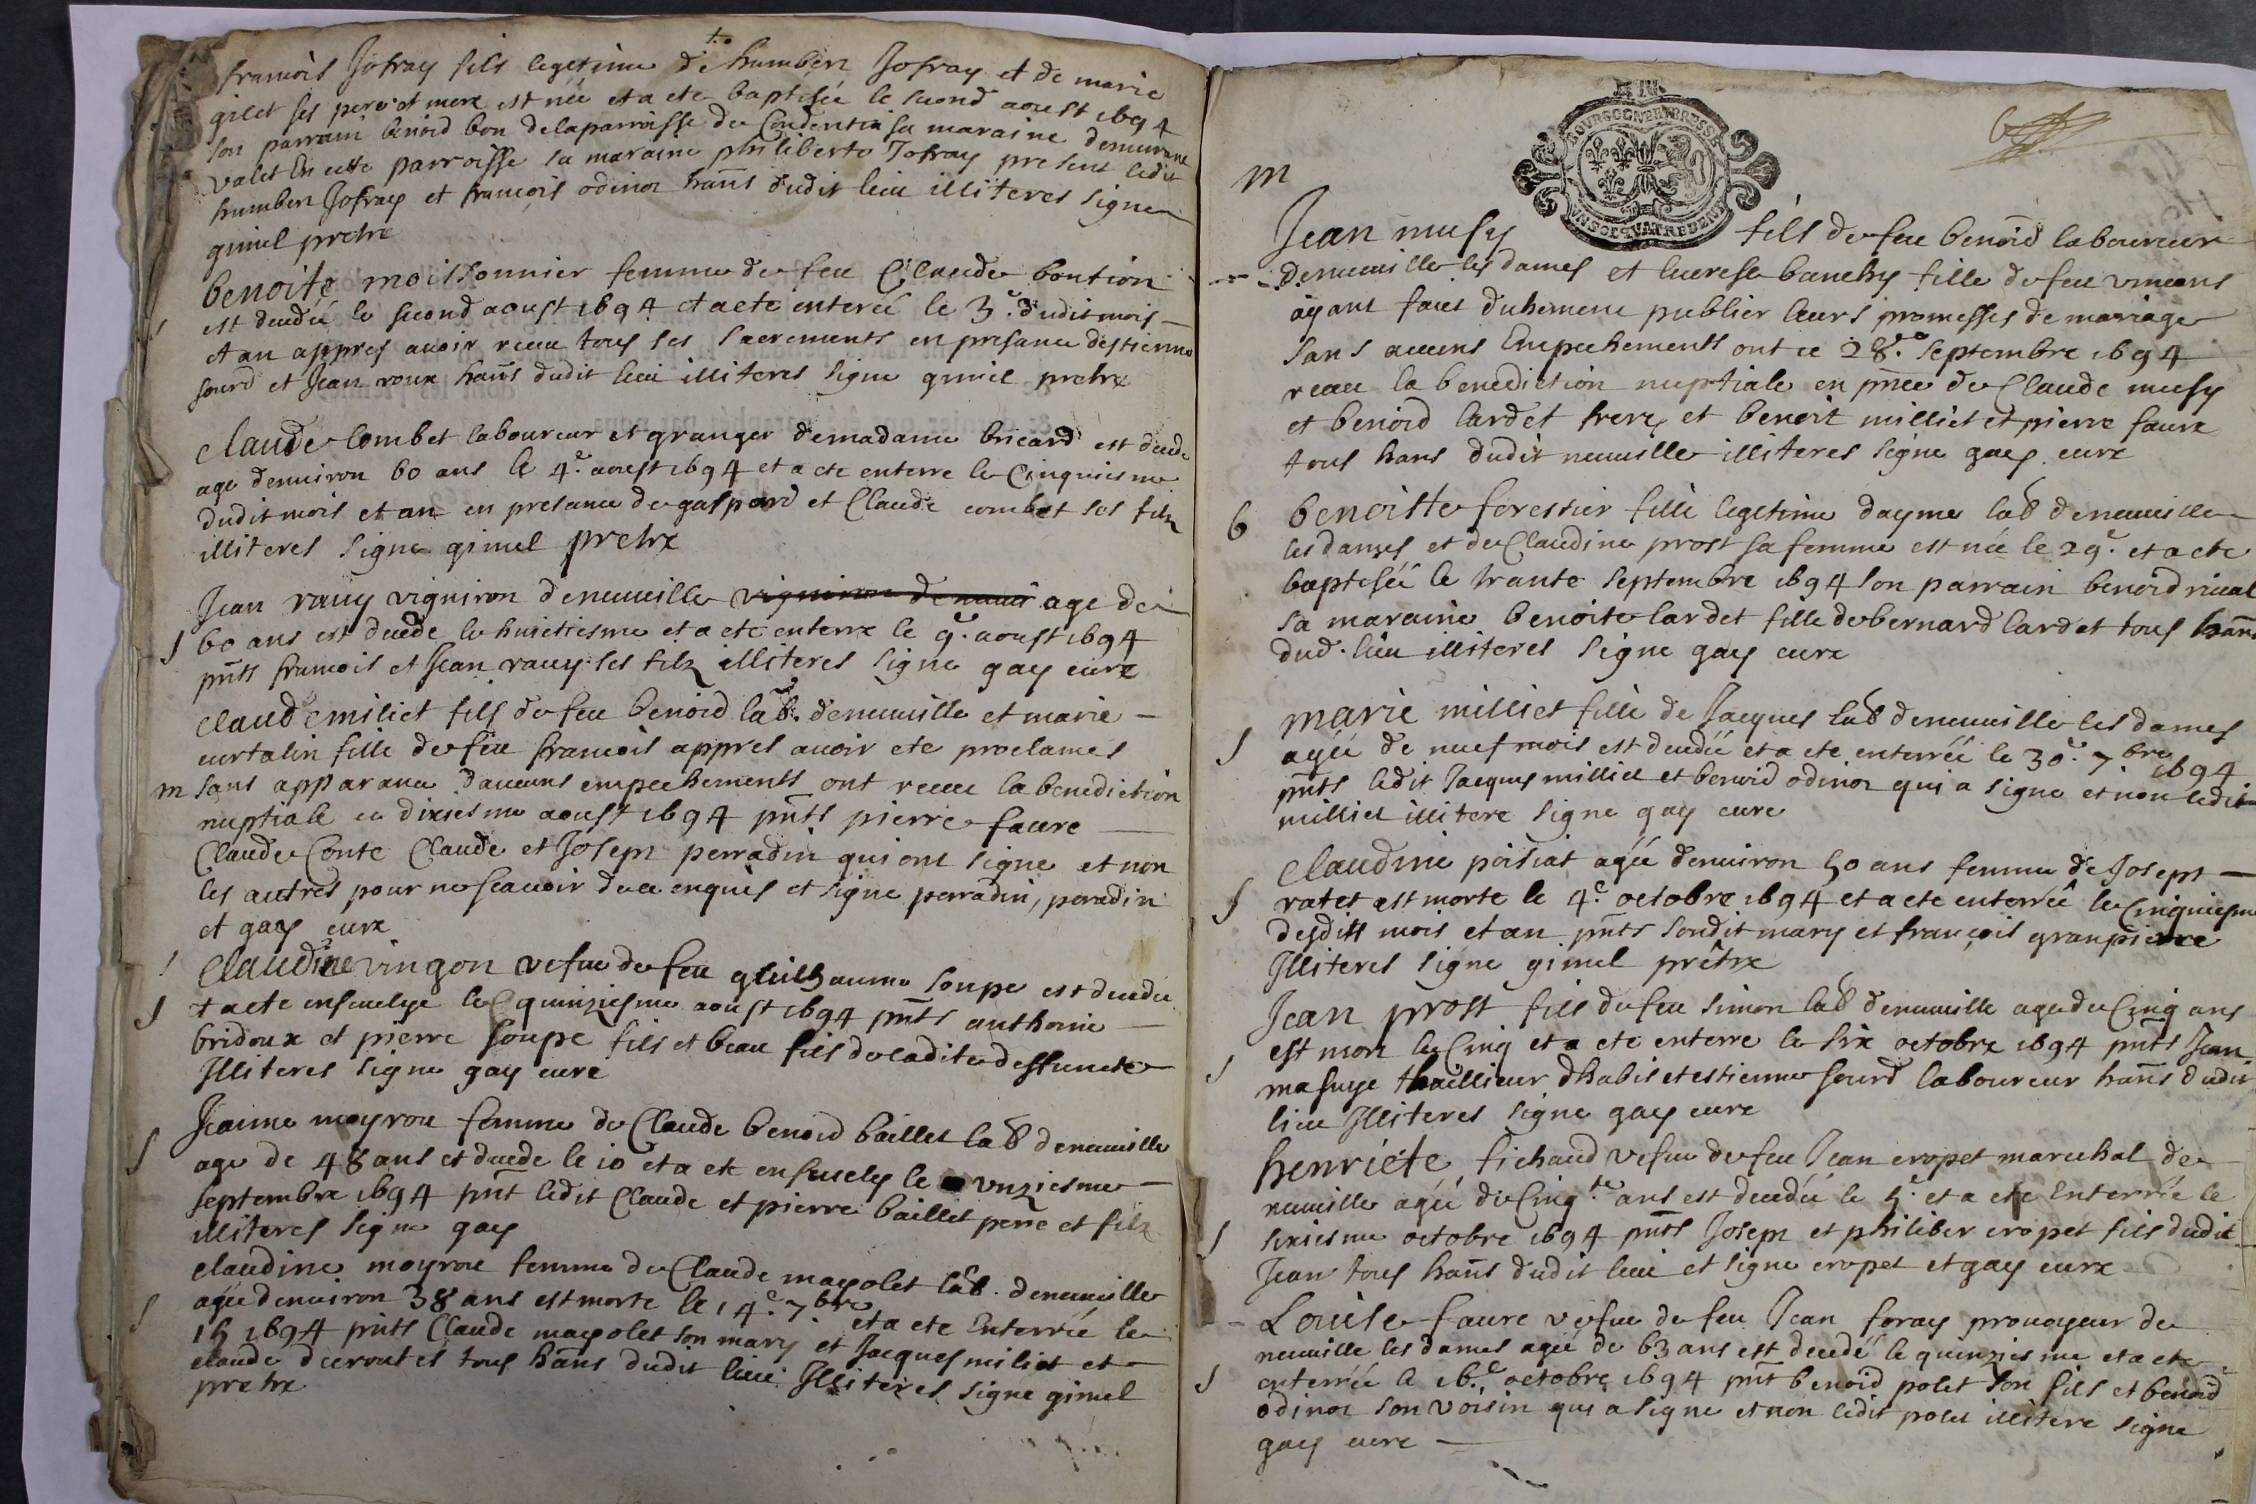 francois Jofray fils legetime de humber Jofray et de marie
gilet ses pere et mere est née et a ete baptisée le second aoust 1694
son parrain benoid bon de la parroisse de Condentia sa maraine demurant
valet En cette parroisse sa maraine philiberte Jofray present ledit
humber Jofray et francois odinor hans dudit lieu illiteres signe
gimel pretre
benoite moissonnier femme de feu Claude bontion
est decedée le second aoust 1694 et a ete enterée le 3e dudit mois
et an appres auoir receu tous ses sacrements en presance destienne
sourd et Jean roux hans dudit lieu illiteres signe gimel pretre
claude combet laboureur et granger de madame bricard est decede
age denuiron 60 ans le 4e aoust 1694 et a ete enterre le Cinquiesme
dudit mois et an en presance de gaspard et Claude combet ses filz
illiteres signe gimel pretre
Jean rauy vigniron de neuuille vigniron de neuui age de
60 ans est decede le huictiesme et a ete enterre le 9e aoust 1694
pnts francois et Jean rauy ses filz illiteres signe gay cure
claude miliet fils de feu benoid lab. de neuuille et marie
curtalin fille de feu francois appres auoir ete proclames
m sans apparance daucuns empechements ont receu la benediction
nuptiale ce dixiesme aoust 1694 pnts pierre faure
Claude Conte Claude et Joseph perradin qui ont signe et non
les autres pour ne scauoir de ce enquis et signe perradin, peradin
et gay cure
Claudine vingon vefue de feu guilhaume soupe est decedée
et a ete enseuelye le quinziesme aoust 1694 pnts anthoine
bridoux et pierre soupe fils et beau fils de ladite deffuncte
Illiteres signe gay cure
Jeanne moyrou femme de Claude benoid baillet lab de neuuille
age de 48 ans est decede le 10 et a ete enseuely le unziesme
septembre 1694 pnt ledit Claude et pierre baillet pere et filz
illiteres signe gay
claudine moyrou femme de Claude mayolet lab. de neuuille
agée denuiron 38 ans est morte le 14e 7bre et a ete Enterrée le
15 1694 pnts Claude mayolet son mary et Jacques miliet et
claude decroutes tous hans dudit lieu Illiteres signe gimel
pretre
BOURGOGNE BRESSE
UN SOL QUATRE DEN
6
m
Jean musy fils de feu benoid laboureur
de neuuille les dames et lucresse banchy fille de feu vincens
ayant faict duhement publier leurs promesses de mariage
sans aucuns Empechements ont ce 28e septembre 1694
receu la benediction nuptiale en pnce de Claude musy
et benoid lardet frere et benoit milliet et pierre faure
tous hans dudit neuuille illiteres signe gay cure
b benoiste forestier fille legetime dayme lab de neuuille
les dames et de Claudine prost sa femme est née le 29e et a ete
baptisée le trante septembre 1694 son parrain benoid riuat
sa maraine benoite lardet fille de bernard lardet tous hans
dud. lieu illiteres signe gay cure
marie milliet fille de Jacques lab de neuuille les dames
agée de neuf mois est decedée et a ete enterrée le 30e 7bre 1694
pnts ledit Jacques milliet et benoid odinor qui a signe et non ledit
milliet illitere signe gay cure
Claudine poisiat agée denuiron 50 ans femme de Joseph
ratet est morte le 4e octobre 1694 et a ete enterrée le Cinquiesme
desdits mois et an pnts sondit mary et françois granpierre
Illiteres signe gimel prêtre
Jean prost fils de feu simon lab de neuuille age de Cinq ans
est mort le Cinq et a ete enterre le six octobre 1694 pnts Jean
masuye thaillieur dhabis et estienne sourd laboureur hans dudit
lieu Illiteres signe gay cure
henriete fichaud vefue de feu Jean cropet marechal de
neuuille agée de Cinq.te ans est decedée le 5e et a ete Enterrée le
sixiesme octobre 1694 pnts Joseph et philiber cropet fils dudit
Jean tous hans dudit lieu et signe cropet et gay cure
Louise faure vefue de feu Jean foray prouoyeur de
neuuille les dames agée de 63 ans est decedé le quinziesme et a ete
enterrée le 16e octobre 1694 pnt benoid polet son fils et benoid
odinor son voisin qui a signe et non ledit polet illitere signe
gay cure